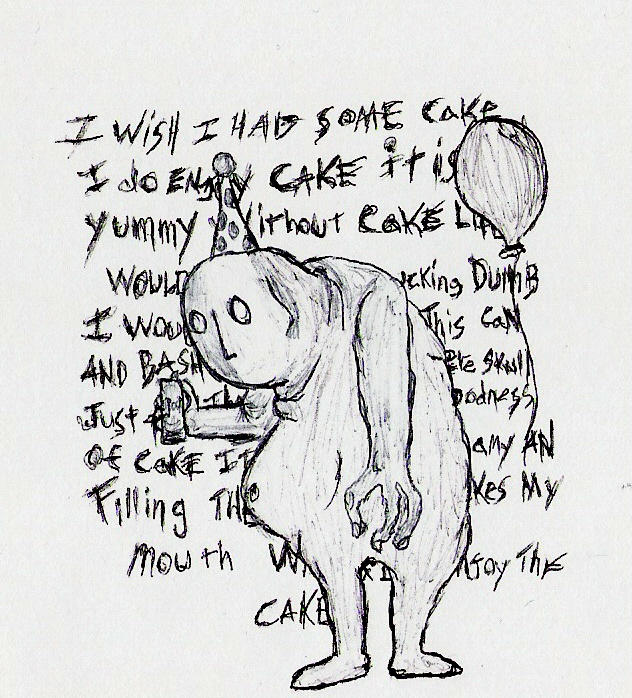 I WISH I HAD SOME CAKE
I do ENjOY CAKE it is
yummy Without CAKE LIFE
WOULD ucking DUMB
I WOUL This CAN
AND BASH ete skull
Just A odness
OF CAKE IT amy AN
Filling THE kes My
mouth W njoy THE
CAKE